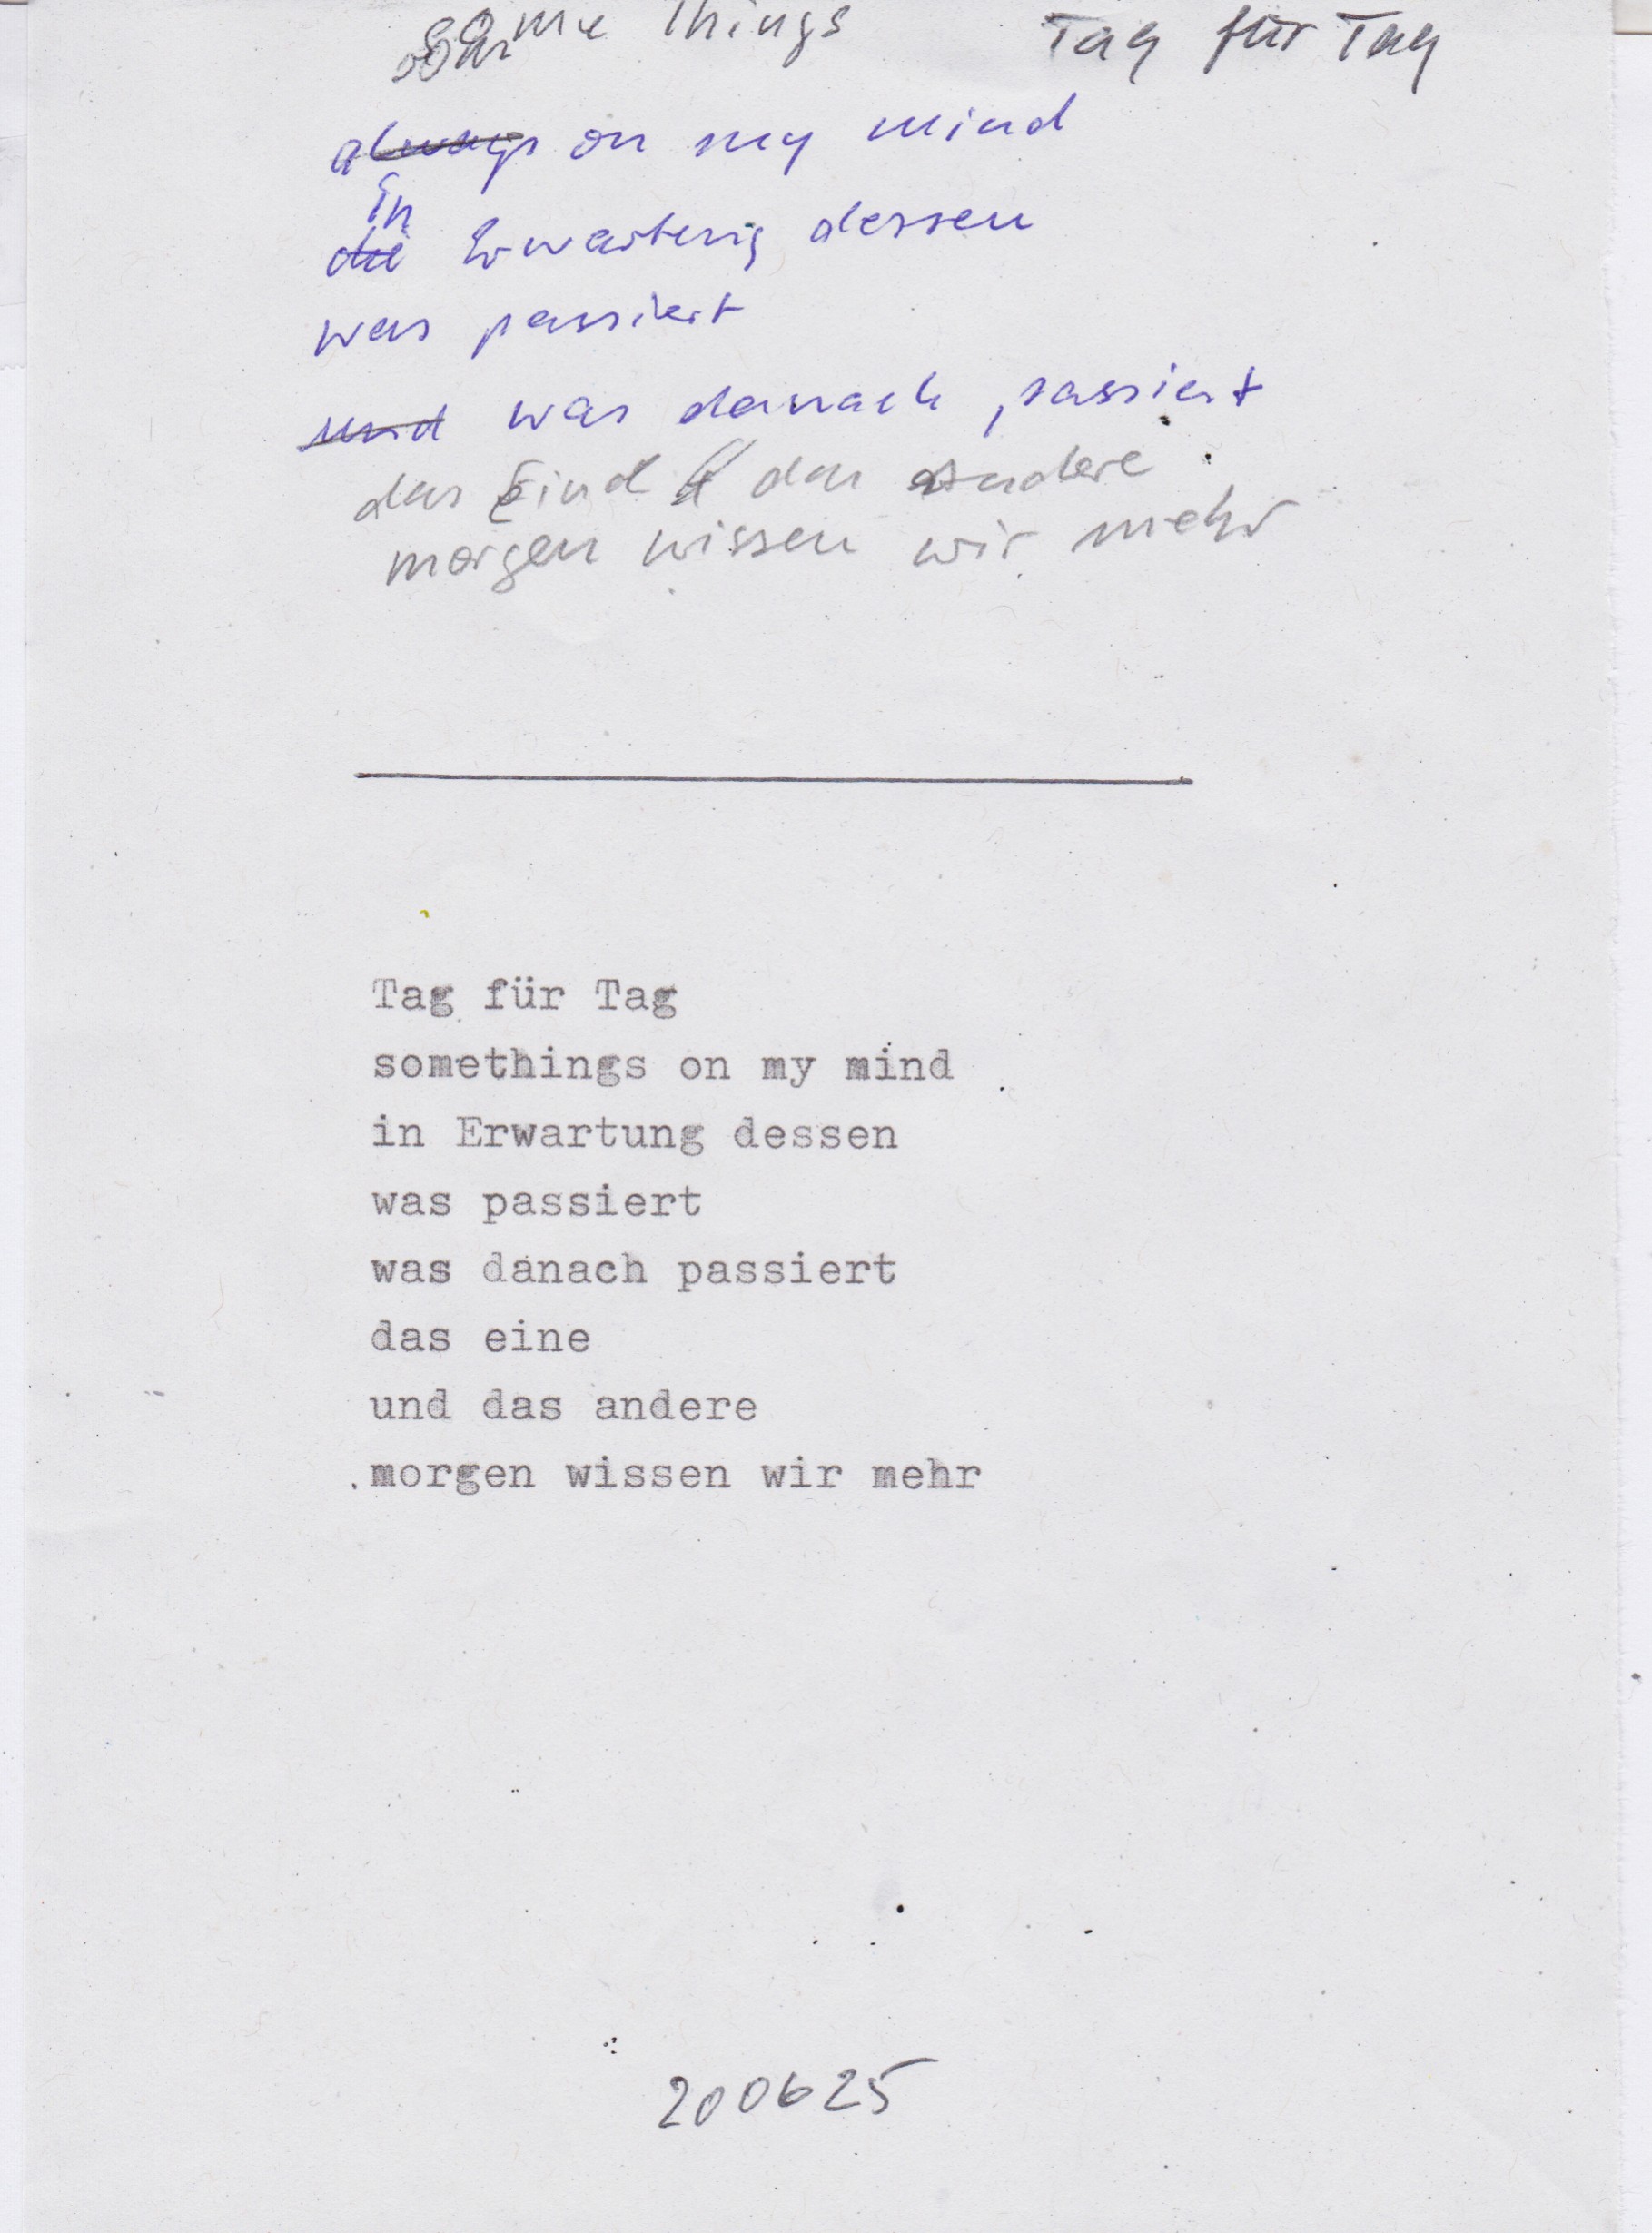 some things Tag für Tag
always on my mind
in
die Erwartung dessen
was passiert
und was danach passiert
das Eine & das Andere
morgen wissen wir mehr
Tag für Tag
somethings on my mind
in Erwartung dessen
was passiert
was danach passiert
das eine
und das andere
morgen wissen wir mehr
200625